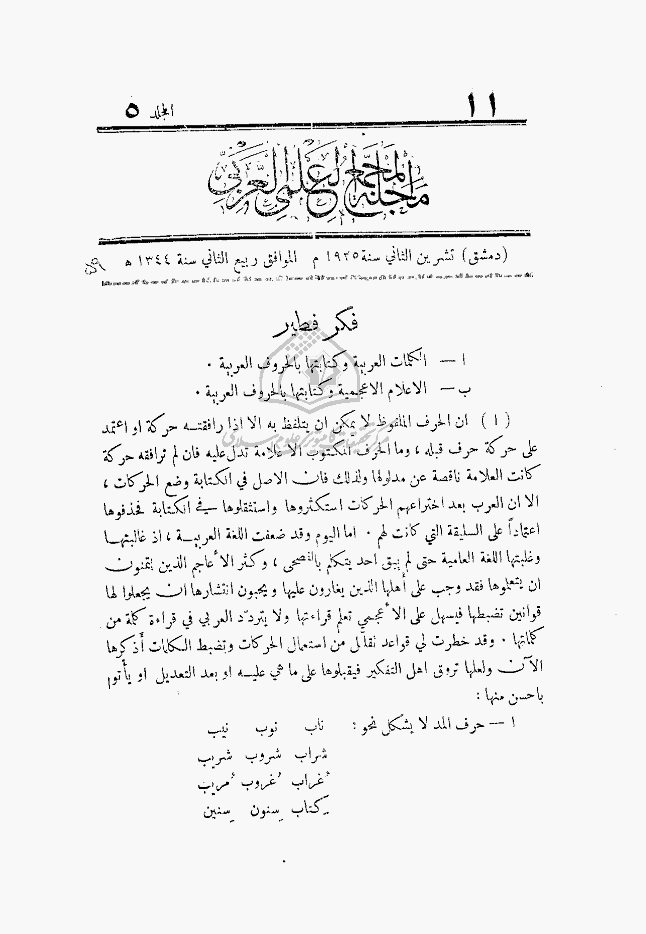 ١١
المجلد ٥
مجلة المجمع العلمي العربي
(دمشق) تشرين الثاني سنة ١٩٢٥ م الموافق ربيع الثاني سنة ١٣٤٤ ه
فكر فطير
ا — الكلمات العربية وكتابتها بالحروف العربية ٠
ب — الاعلام الاعجمية وكتابتها بالحروف العربية ٠
(١) ان الحرف الملفوظ لا يمكن ان يتلفظ به الا اذا رافقته حركة او اعتمد
على حركة حرف قبله ، وما الحرف المكتوب الا علامة تدل عليه فان لم ترافقه حركة
كانت العلامة ناقصة عن مدلولها ولذلك فان الاصل في الكتابة وضع الحركات ،
الا ان العرب بعد اختراعهم الحركات استكثروها واستثقلوها في الكتابة فحذفوها
اعتماداً على السليقة التي كانت لهم ٠ اما اليوم وقد ضعفت اللغة العربية ، اذ غالبتها
وغلبتها اللغة العامية حتى لم يبق احد يتكلم بالفصحى ، وكثر الأعاجم الذين يتمنون
ان يتعلموها فقد وجب على أهلها الذين يغارون عليها ويحبون انتشارها ان يجعلوا لها
قوانين تضبطها فيسهل على الأعجمي تعلم قراءتها ولا يتردد العربي في قراءة كلمة من
كلماتها ٠ وقد خطرت لي قواعد نقلل من استعمال الحركات وتضبط الكلمات أذكرها
الآن ولعلها تروق اهل التفكير فيقبلوها على ما هي عليه او بعد التعديل او يأتوا
باحسن منها :
١ — حرف المد لا يشكل نحو : ناب نوب نيب
شراب شروب شريب
ُغراب ُغروب ُمريب
ِكتاب ِسنون ِسنين